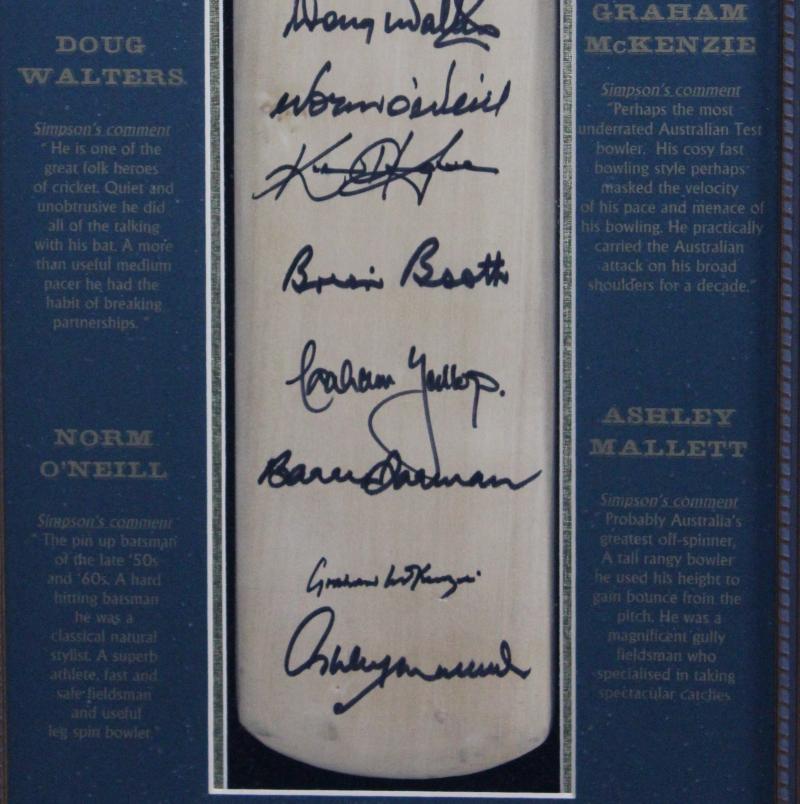 DOUG
WALTERS
Simpson's comment
"He is one of the
great folk heroes
of cricket. Quiet and
unobtrusive he did
all of the talking
with his bat. A more
than useful medium
pacer he had the
habit of breaking
partnerships."
NORM
O'NEILL
Simpson's comment
"The pin up batsman
of the late '50s
and '60s. A hard
hitting batsman
he was a
classical natural
stylist. A superb
athlete, fast and
safe fieldsman
and useful
leg spin bowler."
Doug Walters
Norm O'Neill
Brian Booth
Graham Yallop.
Barry Jarman
Graham McKenzie
Ashley Mallett
GRAHAM
McKENZIE
Simpson's comment
"Perhaps the most
underrated Australian Test
bowler. His cosy fast
bowling style perhaps
masked the velocity
of his pace and menace of
his bowling. He practically
carried the Australian
attack on his broad
shoulders for a decade."
ASHLEY
MALLETT
Simpson's comment
"Probably Australia's
greatest off-spinner,
A tall rangy bowler
he used his height to
gain bounce from the
pitch. He was a
magnificent gully
fieldsman who
specialised in taking
spectacular catches